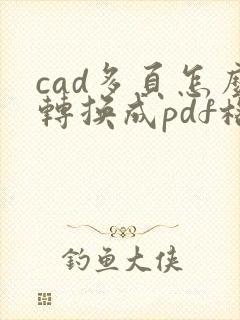 cad多頁怎麼
轉換成pdf格
釣魚大俠